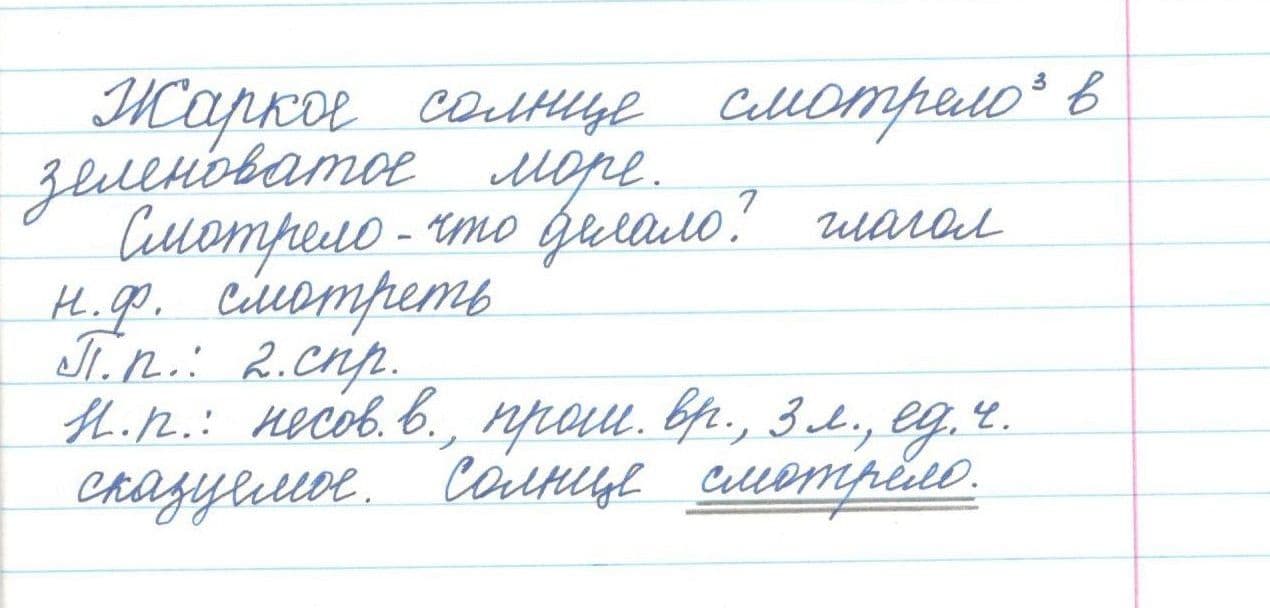 Жаркое солнце смотрело³ в
зеленоватое море.
Смотрело - что делало? глагол
н.ф. смотреть
П.п.: 2.спр.
Н.п.: несов.в., прош. вр., 3 л., ед.ч.
сказуемое. Солнце смотрело.